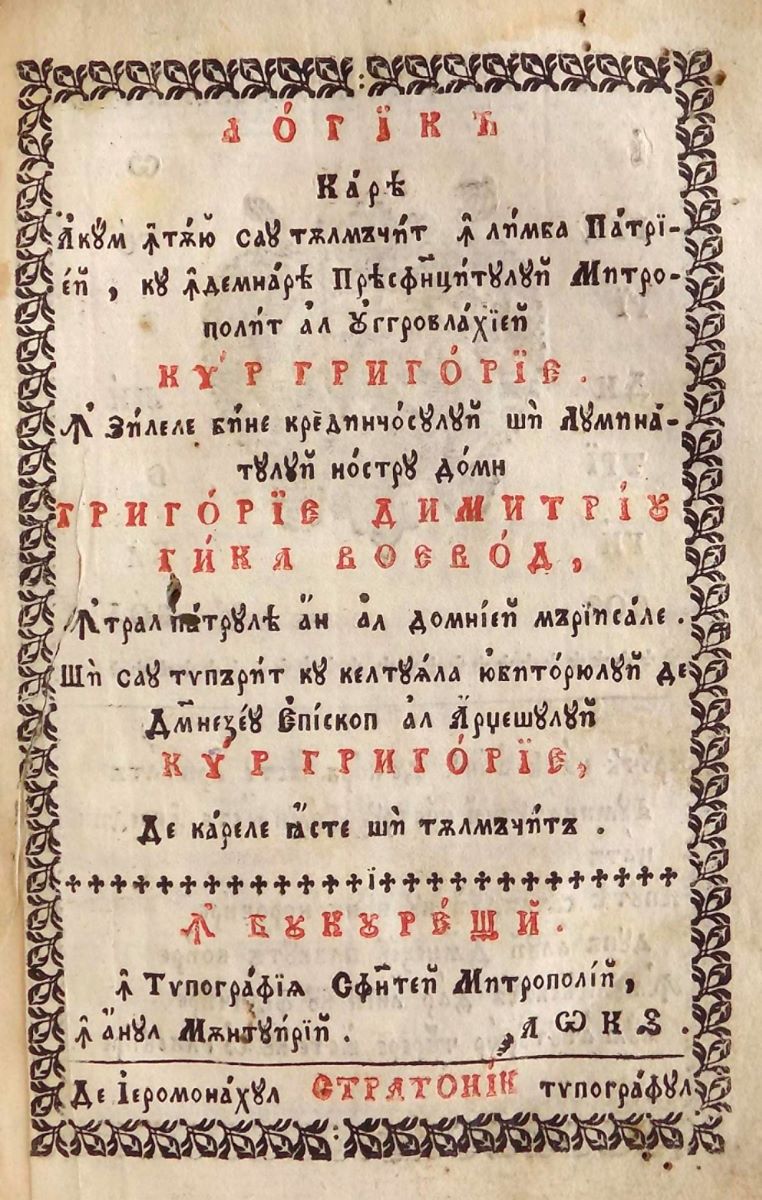 ЛО́ГЇКЪ
Ка́рѣ
Акꙋм ꙟ҆тѫ́ю саꙋ тѫлмъчи́т ꙟ҆ ли́мба Па́трї-
е́й, кꙋ ꙟ҆демна́рѣ Прѣсфн҃ци́тꙋлꙋй Митро-
поли́т а҆л Оу҆ггровла́хїей
КѴ́Р ГРИГО́РЇЕ.
Ꙟ҆ зи́леле би́не крединчо́сꙋлꙋй шѝ Лꙋмина́-
тꙋлꙋй но́строу до́мн
ГРИГО́РЇЕ ДИМИТРІ́Ꙋ
ГИ́КА ВОЕВО́Д,
Ꙟ҆трал па́трꙋлѣ а҆́н а҆л домні́ей мърїисале.
Шѝ саꙋ тѵпъри́т кꙋ келтꙋѧ́ла юбито́рюлꙋй де
Дм҃незе́ꙋ Е҆пі́скоп а҆л А҆́рџешꙋлꙋй
КѴ́Р ГРИГО́РЇЕ,
Де ка́реле ꙗ҆́сте шѝ тѫлмъчи́тъ.
Ꙟ҆ БꙊКꙊРЕ́ЩЙ.
ꙟ҆ Тѵпогра́фїѧ Сфн҃тей Митрополі́й,
ꙟ҆ а҆́нꙋл Мѫнтꙋи́рїй. ҂АѠКЅ.
Де І҆еромона́хꙋл СТРАТОНИ́К тѵпогра́фꙋл